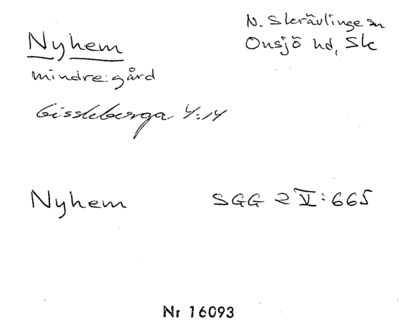 Nyhem
N. Skrävlinge sn
Onsjö hd, Sk
mindre gård
Gissleberga 4:14
Nyhem SGG 2 V:665
Nr 16093